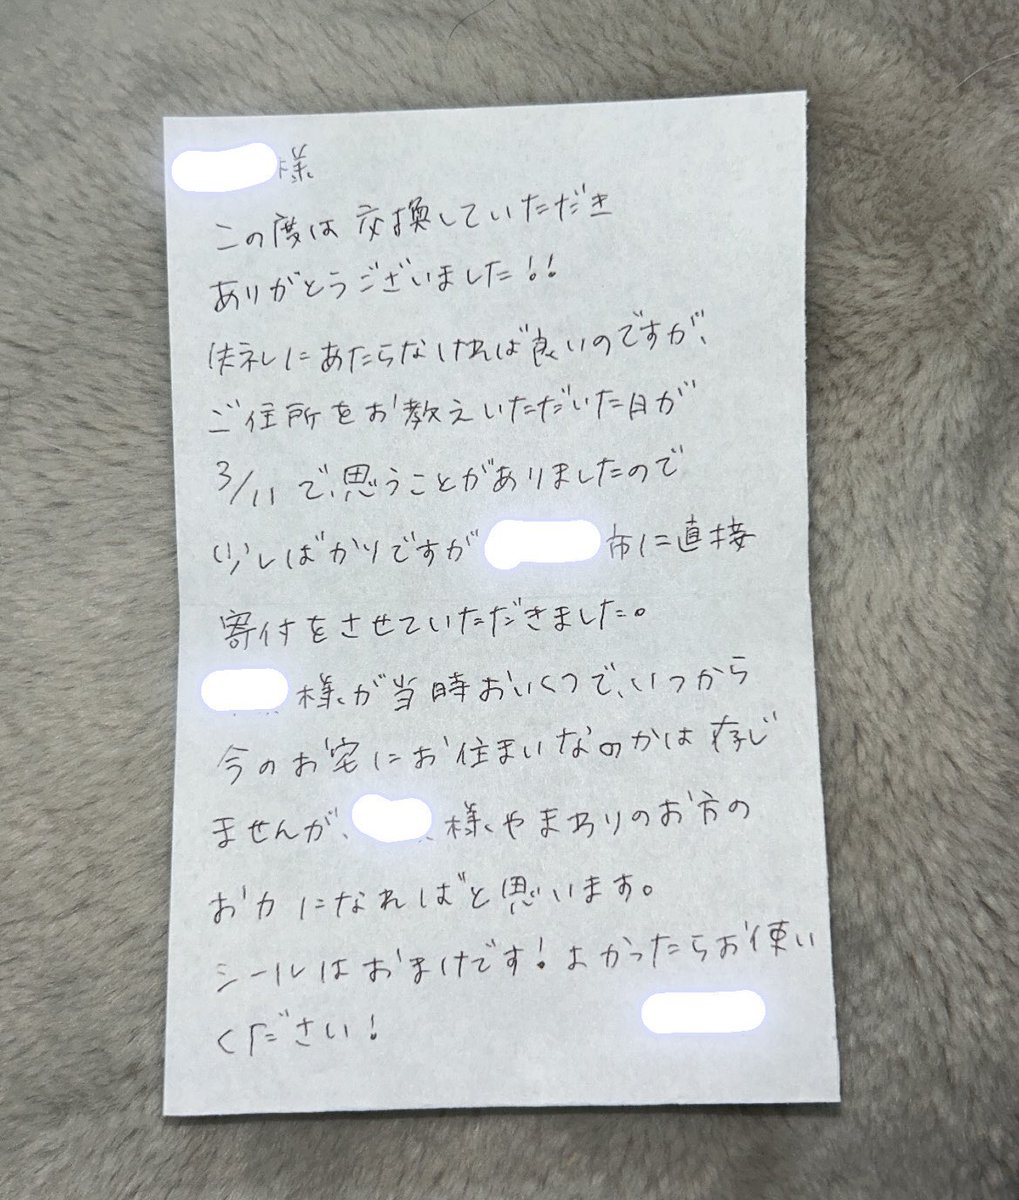 様
この度は交換していただき
ありがとうございました!!
失礼にあたらなければ良いのですが、
ご住所をお教えいただいた日が
3/11で、思うことがありましたので
少しばかりですが 市に直接
寄付をさせていただきました。
様が当時おいくつで、いつから
今のお宅にお住まいなのかは存じ
ませんが、 様やまわりのお方の
お力になればと思います。
シールはおまけです!よかったらお使い
ください!